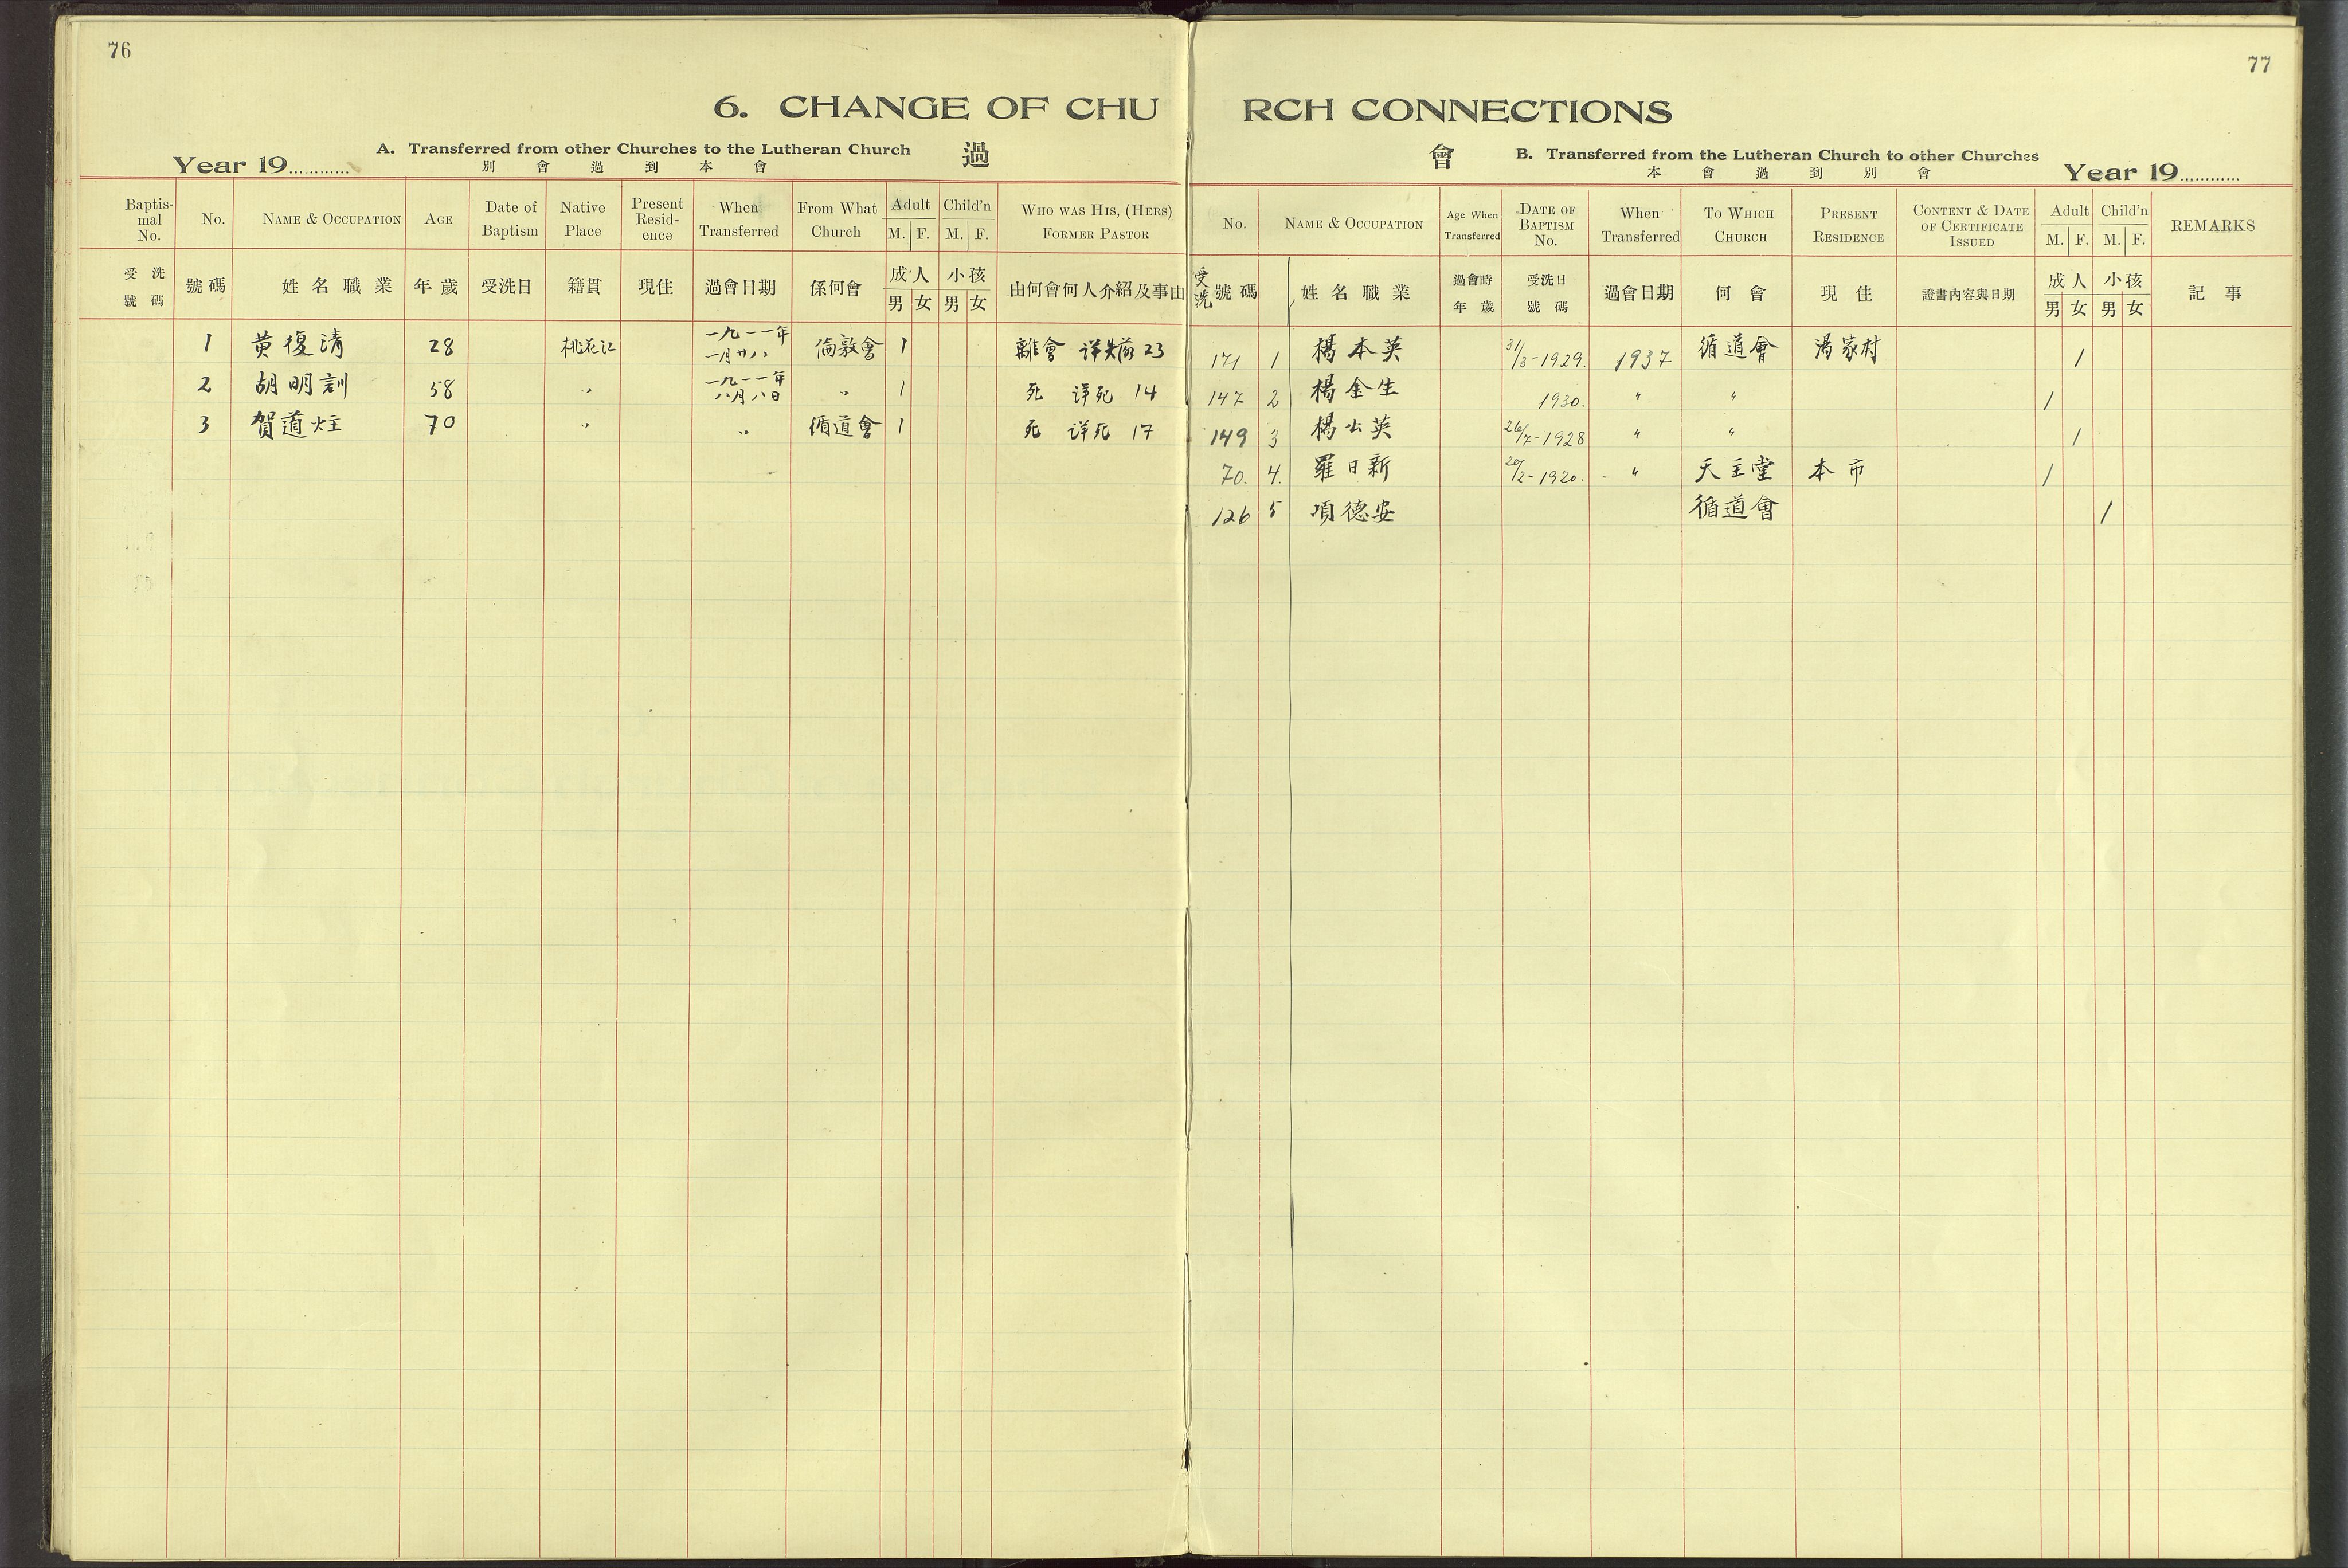 76
6. CHANGE OF CHU
A. Transferred from other Churches to the Lutheran Church 過
Year 19............
別會過到本會
Baptismal No. No. NAME & OCCUPATION AGE Date of Baptism Native Place Present Residence When Transferred From What Church Adult M. F. Child'n M. F. WHO WAS HIS, (HERS) FORMER PASTOR
受洗號碼 號碼 姓名職業 年歲 受洗日 籍貫 現住 過會日期 係何會 成人 男 女 小孩 男 女 由何會何人介紹及事由
1 黄復清 28 桃花江 一九一一年一月廿八 倫敦會 1 離會 详失前 23
2 胡明訓 58 〃 一九一一年八月八日 〃 1 死 详死 14
3 賀道炷 70 〃 〃 循道會 1 死 详死 17
77
RCH CONNECTIONS
會 B. Transferred from the Lutheran Church to other Churches
本會過到別會
Year 19............
No. NAME & OCCUPATION Age When Transferred DATE OF BAPTISM No. When Transferred TO WHICH CHURCH PRESENT RESIDENCE CONTENT & DATE OF CERTIFICATE ISSUED Adult M. F. Child'n M. F. REMARKS
受洗 號碼 姓名職業 過會時年歲 受洗日號碼 過會日期 何會 現住 證書內容與日期 成人 男 女 小孩 男 女 記事
171 1 楊本英 31/3-1929. 1937 循道會 湯家村 1
147 2 楊金生 1930. 〃 〃 1
149 3 楊公英 26/7-1928 〃 〃 1
70. 4. 羅日新 20/2-1920. 〃 天主堂 本市 1
126 5 項德安 循道會 1